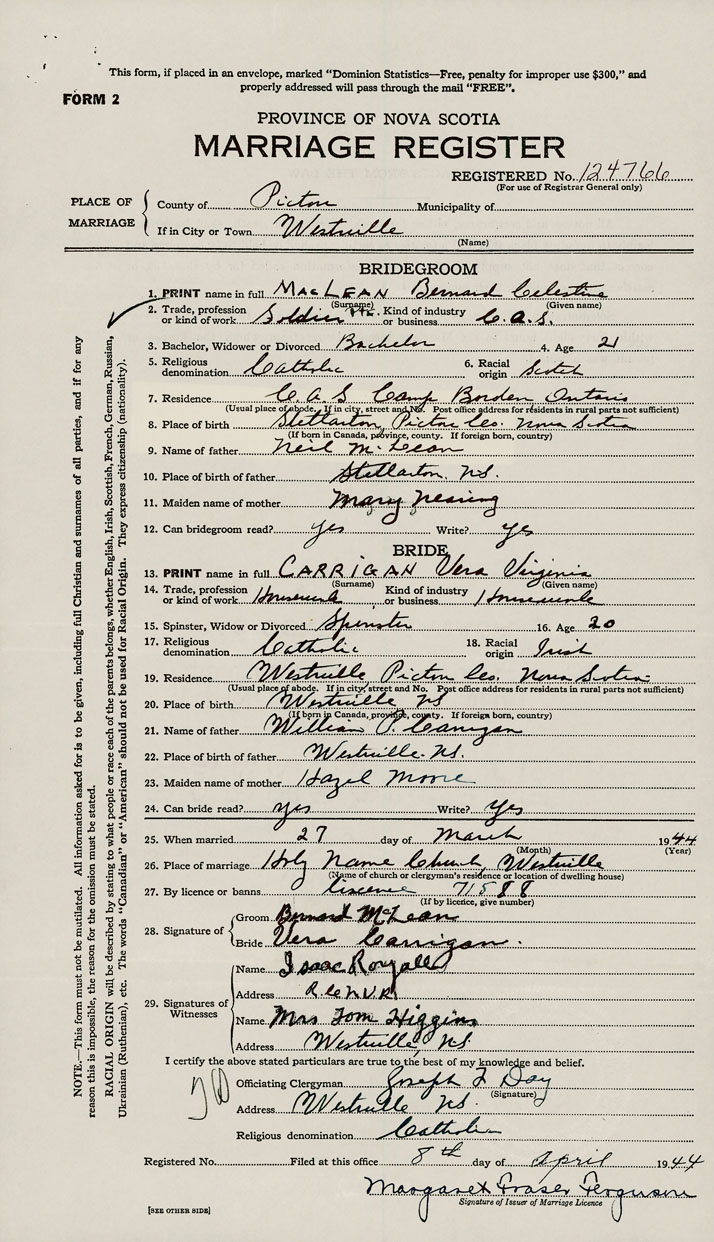 This form, if placed in an envelope, marked "Dominion Statistics—Free, penalty for improper use $300," and
properly addressed will pass through the mail "FREE".
FORM 2
PROVINCE OF NOVA SCOTIA
MARRIAGE REGISTER
REGISTERED No. 124766
(For use of Registrar General only)
PLACE OF MARRIAGE
County of Pictou Municipality of
If in City or Town Westville
(Name)
BRIDEGROOM
1. PRINT name in full MacLEAN Bernard Celestine
(Surname) (Given name)
2. Trade, profession or kind of work Soldier Pte. Kind of industry or business C.A.S.
3. Bachelor, Widower or Divorced Bachelor 4. Age 21
5. Religious denomination Catholic 6. Racial origin Scotch
7. Residence C.A.S Camp Borden Ontario
(Usual place of abode. If in city, street and No. Post office address for residents in rural parts not sufficient)
8. Place of birth Stellarton, Pictou Co. Nova Scotia
(If born in Canada, province, county. If foreign born, country)
9. Name of father Neil McLean
10. Place of birth of father Stellarton. N.S.
11. Maiden name of mother Mary Nearing
12. Can bridegroom read? yes Write? yes
BRIDE
13. PRINT name in full CARRIGAN Vera Virginia
(Surname) (Given name)
14. Trade, profession or kind of work Housework Kind of industry or business Housework
15. Spinster, Widow or Divorced Spinster 16. Age 20
17. Religious denomination Catholic 18. Racial origin Irish
19. Residence Westville, Pictou Co. Nova Scotia
(Usual place of abode. If in city, street and No. Post office address for residents in rural parts not sufficient)
20. Place of birth Westville NS
(If born in Canada, province, county. If foreign born, country)
21. Name of father William P. Carrigan
22. Place of birth of father Westville. N.S.
23. Maiden name of mother Hazel Moore
24. Can bride read? yes Write? yes
25. When married 27 day of March 1944
(Month) (Year)
26. Place of marriage Holy Name Church, Westville
(Name of church or clergyman's residence or location of dwelling house)
27. By licence or banns liscence 71588
(If by licence, give number)
28. Signature of
Groom Bernard McLean
Bride Vera Carrigan.
29. Signatures of Witnesses
Name Isaac Royalle
Address RCNVR
Name Mrs Tom Higgins
Address Westville, NS.
I certify the above stated particulars are true to the best of my knowledge and belief.
Officiating Clergyman Joseph F Day
(Signature)
Address Westville NS.
Religious denomination Catholic
Registered No. Filed at this office 8th day of April 1944
Margaret Fraser Ferguson
Signature of Issuer of Marriage Licence
[SEE OTHER SIDE]
NOTE.—This form must not be mutilated. All information asked for is to be given, including full Christian and surnames of all parties, and if for any
reason this is impossible, the reason for the omission must be stated.
RACIAL ORIGIN will be described by stating to what people or race each of the parents belongs, whether English, Irish, Scottish, French, German, Russian,
Ukrainian (Ruthenian), etc. The words "Canadian" or "American" should not be used for Racial Origin. They express citizenship (nationality).